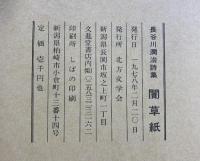 長谷川潤治詩集 闇草紙
発行日 一九七八年一月二〇日
発行所 北方文学会
新潟県長岡市坂之上町一丁目
文進堂書店内(〇二五八)三二―二六二一
印刷所 しばの印刷
新潟県柏崎市小倉町十三番十四号
定価 壱千円也